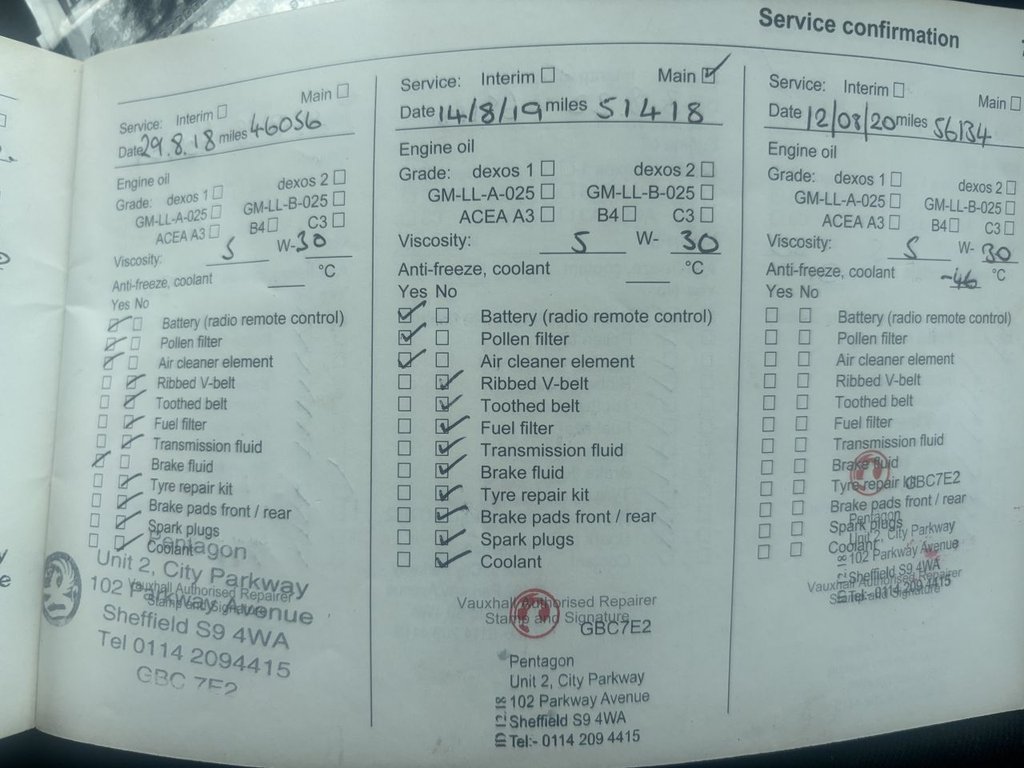 Service confirmation
Service: Interim ☐ Main ☐
Date 29.8.18 miles 46056
Engine oil
Grade: dexos 1 ☐ dexos 2 ☐
GM-LL-A-025 ☐ GM-LL-B-025 ☐
ACEA A3 ☐ B4 ☐ C3 ☐
Viscosity: 5 W-30
Anti-freeze, coolant °C
Yes No
☑ ☐ Battery (radio remote control)
☑ ☐ Pollen filter
☑ ☐ Air cleaner element
☐ ☑ Ribbed V-belt
☐ ☑ Toothed belt
☐ ☑ Fuel filter
☐ ☑ Transmission fluid
☑ ☐ Brake fluid
☐ ☑ Tyre repair kit
☐ ☑ Brake pads front / rear
☐ ☑ Spark plugs
☐ ☑ Coolant
Vauxhall Authorised Repairer
Stamp and Signature
Pentagon
Unit 2, City Parkway
102 Parkway Avenue
Sheffield S9 4WA
Tel 0114 2094415
GBC 7E2
Service: Interim ☐ Main ☑
Date 14/8/19 miles 51418
Engine oil
Grade: dexos 1 ☐ dexos 2 ☐
GM-LL-A-025 ☐ GM-LL-B-025 ☐
ACEA A3 ☐ B4 ☐ C3 ☐
Viscosity: 5 W- 30
Anti-freeze, coolant °C
Yes No
☑ ☐ Battery (radio remote control)
☑ ☐ Pollen filter
☑ ☐ Air cleaner element
☐ ☑ Ribbed V-belt
☐ ☑ Toothed belt
☐ ☑ Fuel filter
☐ ☑ Transmission fluid
☐ ☑ Brake fluid
☐ ☑ Tyre repair kit
☐ ☑ Brake pads front / rear
☐ ☑ Spark plugs
☐ ☑ Coolant
Vauxhall Authorised Repairer
Stamp and Signature
GBC7E2
Pentagon
Unit 2, City Parkway
102 Parkway Avenue
Sheffield S9 4WA
Tel:- 0114 209 4415
ID 12.18
Service: Interim ☐ Main ☐
Date 12/03/20 miles 56134
Engine oil
Grade: dexos 1 ☐ dexos 2 ☐
GM-LL-A-025 ☐ GM-LL-B-025 ☐
ACEA A3 ☐ B4 ☐ C3 ☐
Viscosity: 5 W- 30
Anti-freeze, coolant -46 °C
Yes No
☐ ☐ Battery (radio remote control)
☐ ☐ Pollen filter
☐ ☐ Air cleaner element
☐ ☐ Ribbed V-belt
☐ ☐ Toothed belt
☐ ☐ Fuel filter
☐ ☐ Transmission fluid
☐ ☐ Brake fluid
☐ ☐ Tyre repair kit
☐ ☐ Brake pads front / rear
☐ ☐ Spark plugs
☐ ☐ Coolant
Vauxhall Authorised Repairer
Stamp and Signature
GBC7E2
Pentagon
Unit 2, City Parkway
102 Parkway Avenue
Sheffield S9 4WA
Tel:- 0114 209 4415